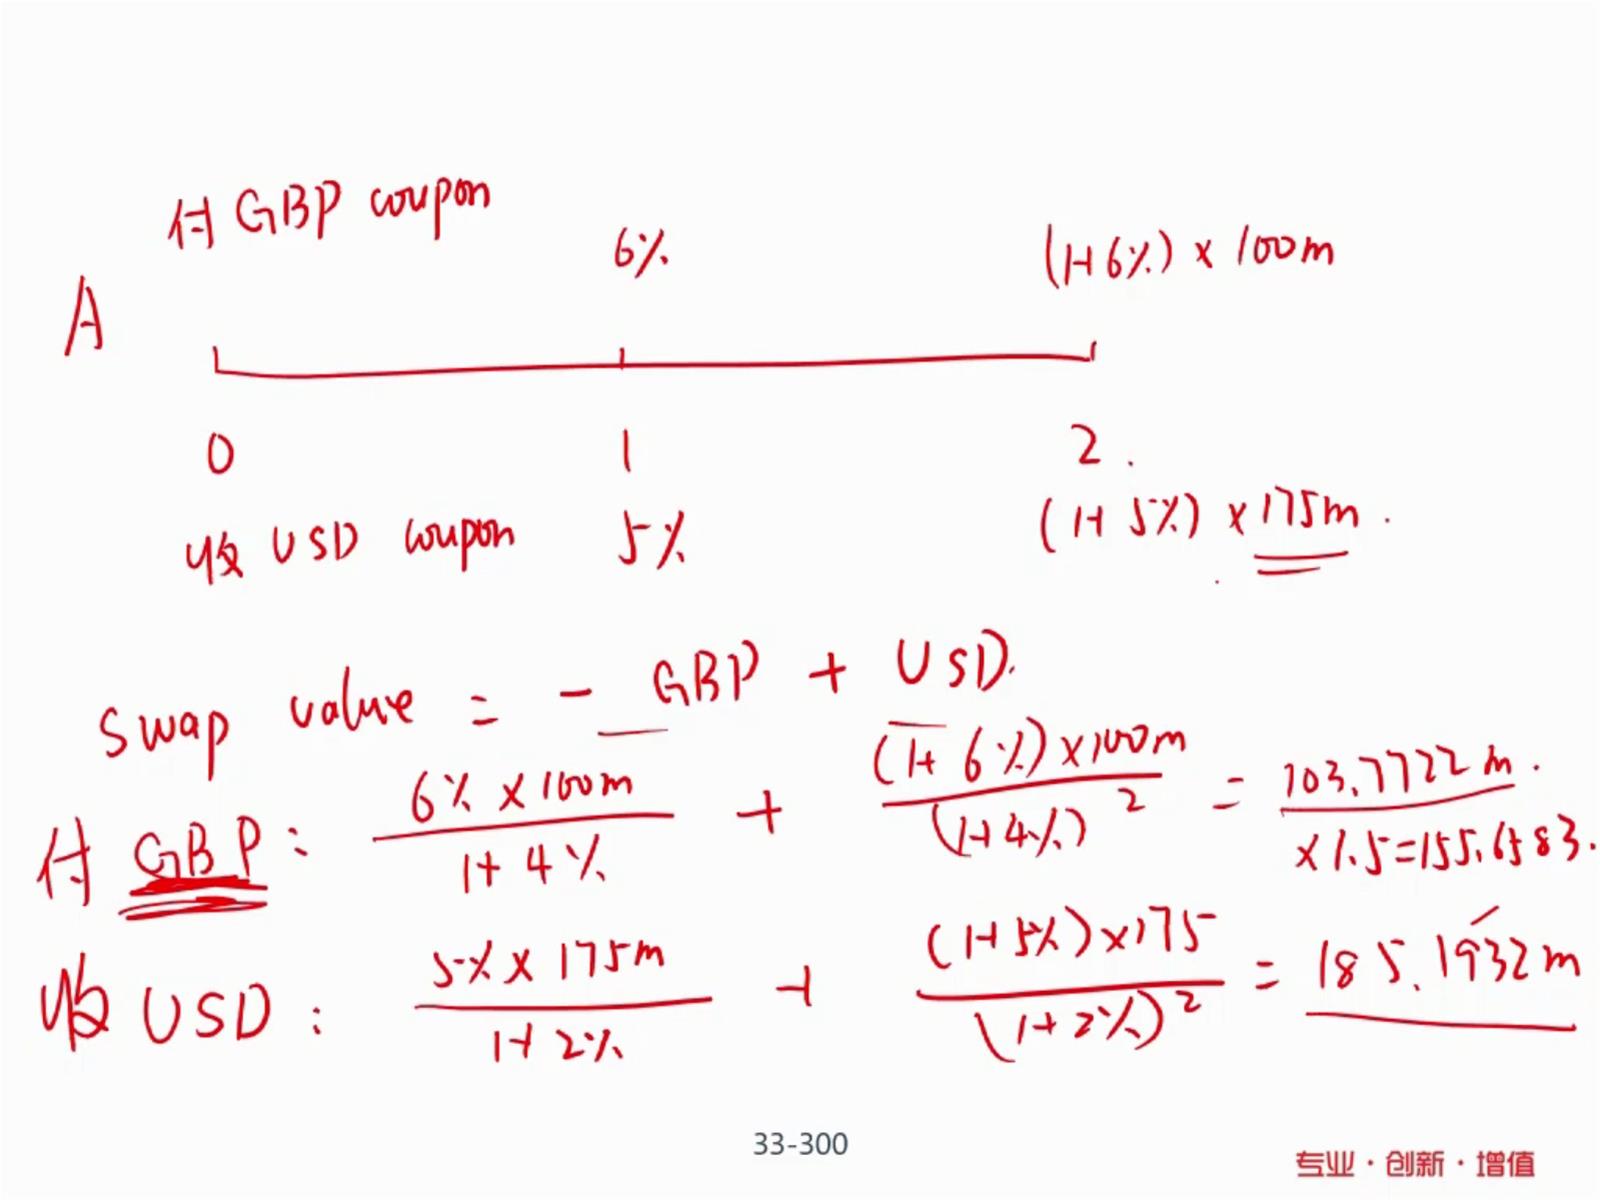 付 GBP coupon
6%
(1+6%) × 100m
A
0
1
2.
收 USD coupon
5%
(1+5%) × 175m.
Swap value = - GBP + USD.
付 GBP: 6% × 100m / 1+4% + (1+6%) × 100m / (1+4%)² = 103.7722 m.
× 1.5 = 155.6583.
收 USD: 5% × 175m / 1+2% + (1+5%) × 175 / (1+2%)² = 185.1932 m
33-300
专业·创新·增值